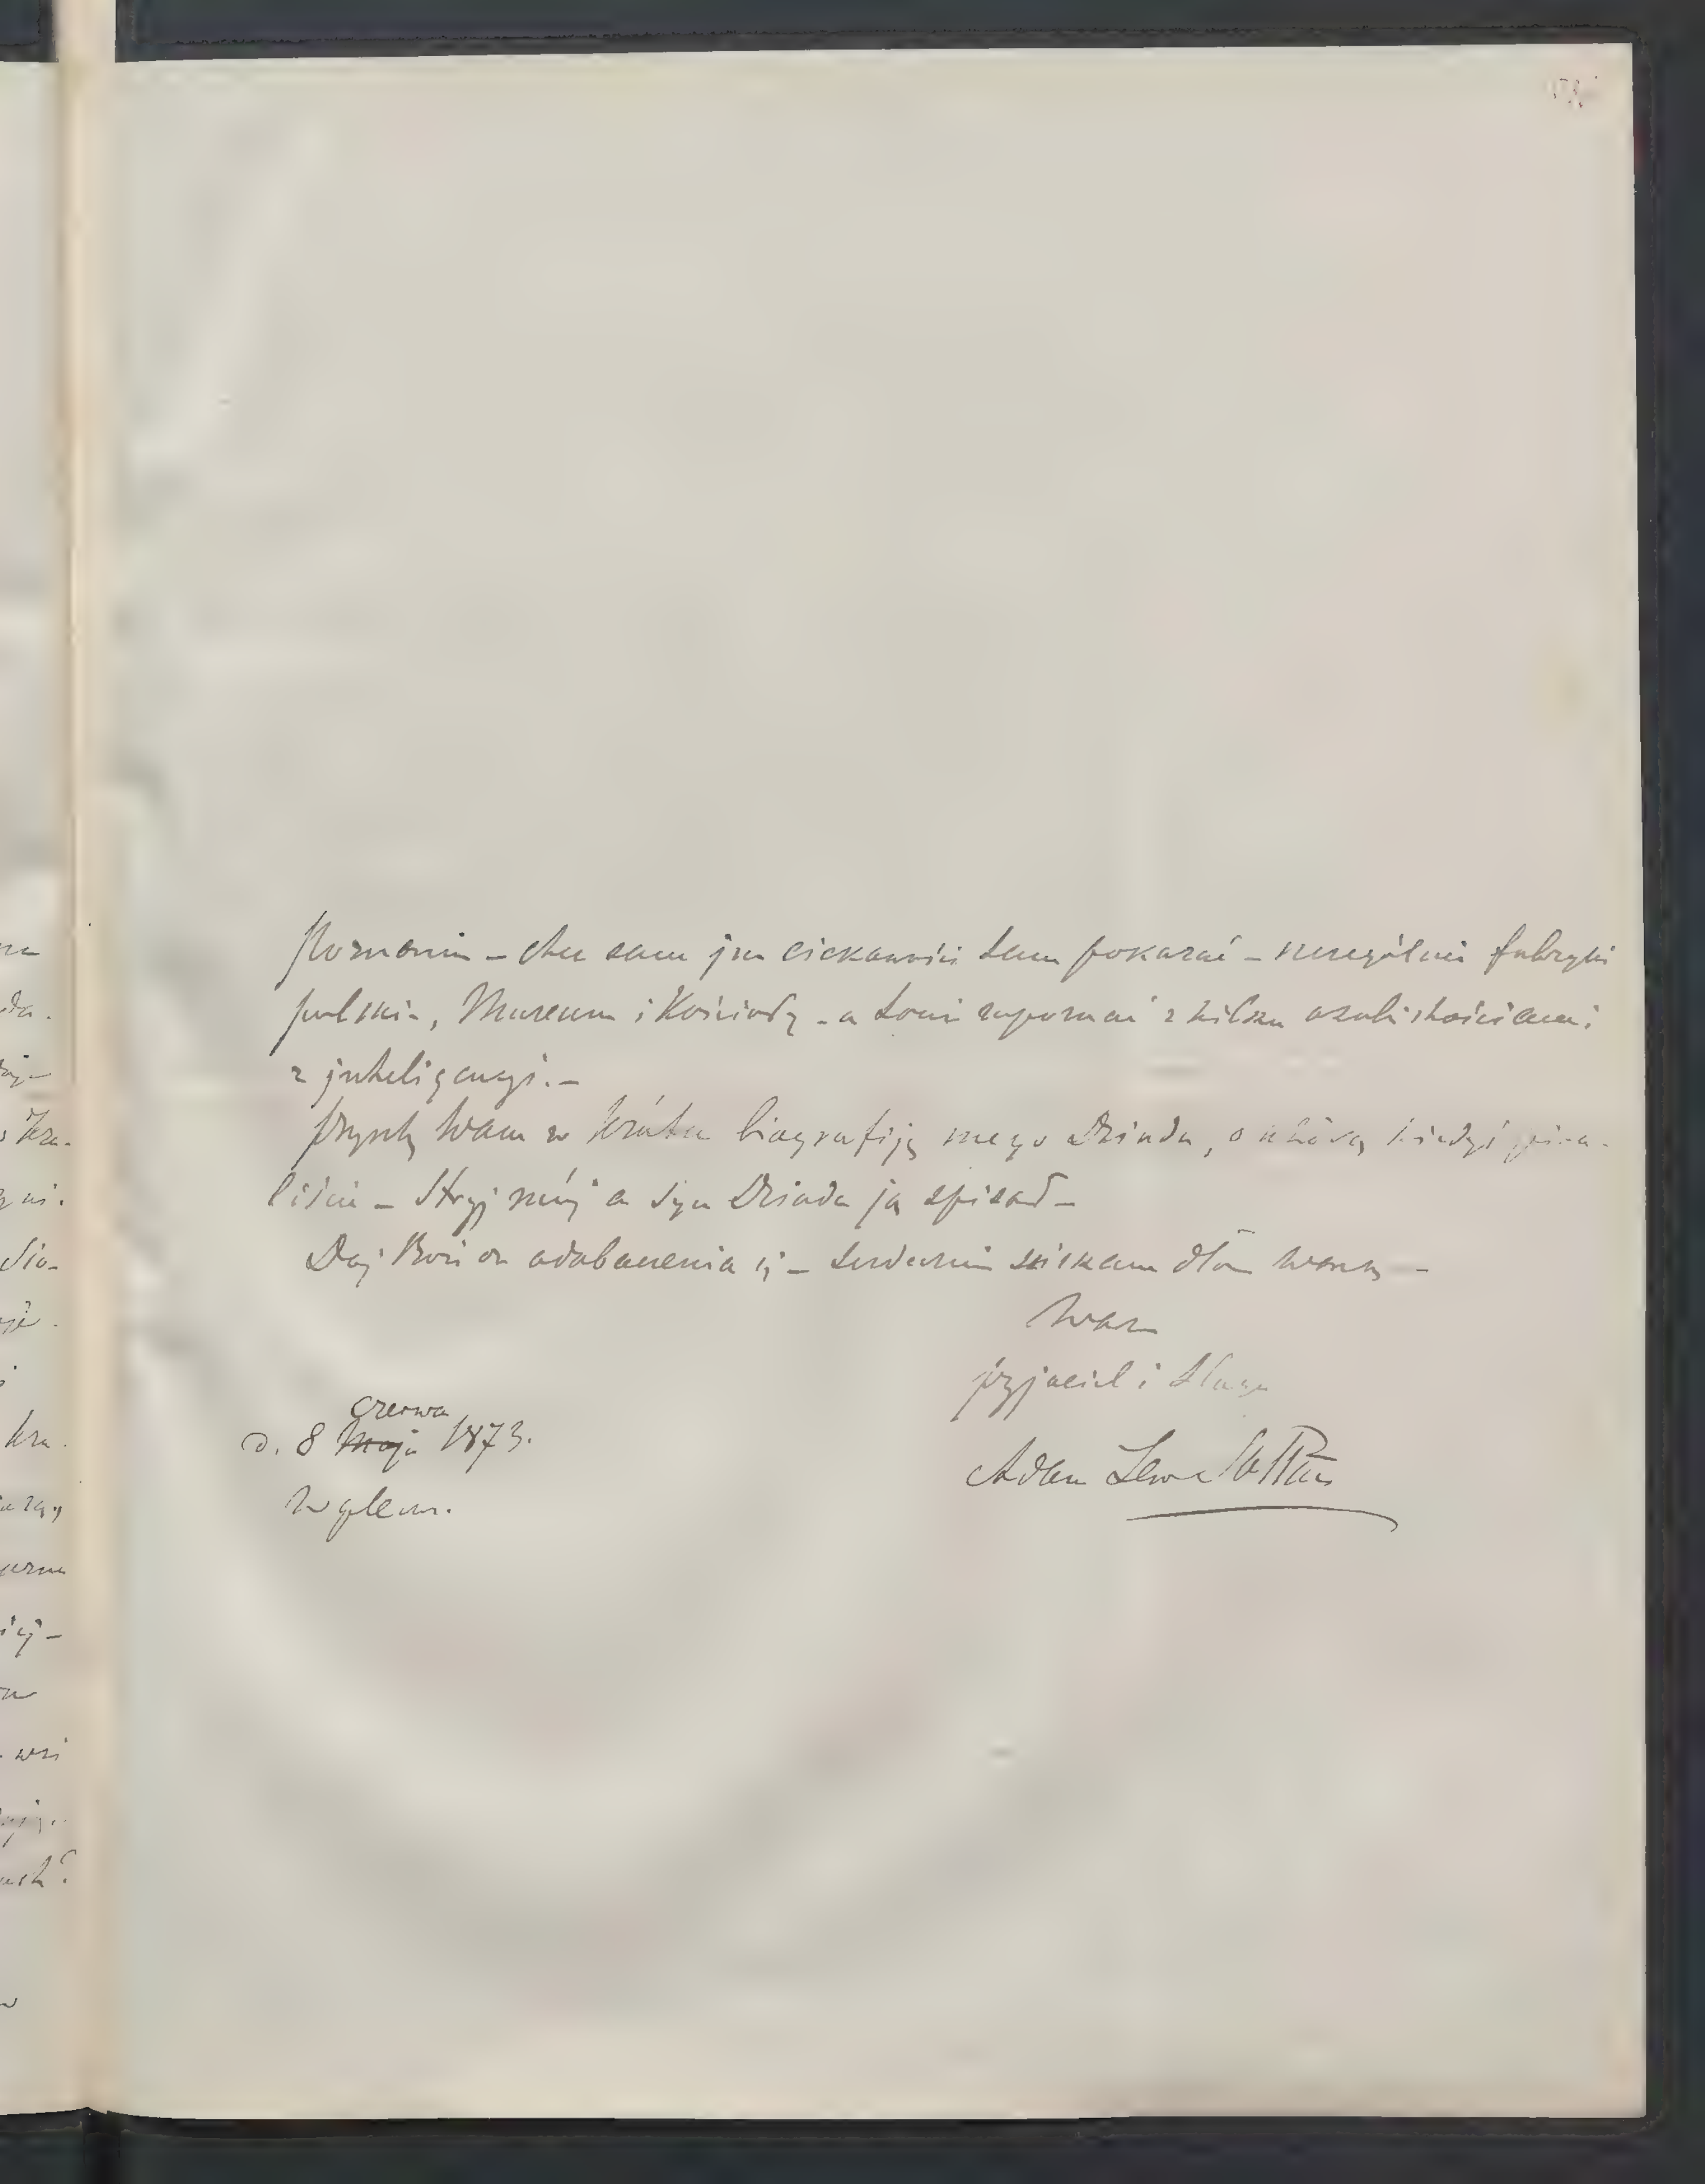 Poznaniu – chcę sam jm ciekawości tam pokazać – szczególniej fabryki
polskie, Muzeum i Kościoły – a toż zapoznać z kilku osobistościami
z jnteligencyi. –
Przyszlę Wam w krótce biografiję mego Dziada, o którą kiedyś pisa-
liście – Stryj mój a syn Dziada ją spisał –
Daj Boże do zobaczenia się – serdecznie ściskam dłoń Waszę –
Wasz
przyjaciel i sługa
Adam Lewa Sołtan
czerwca
d. 8 Maja 1873.